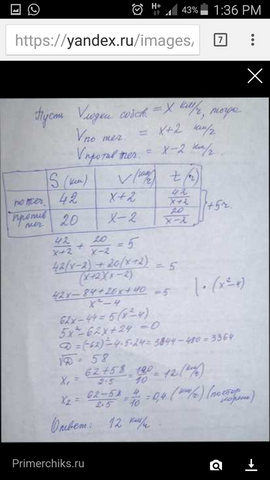 43% 1:36 PM
https://yandex.ru/images/
7
Пусть Vлодки собств = x км/ч, тогда
Vпо теч. = x+2 км/ч
Vпротив теч. = x-2 км/ч
S (км) V (км/ч) t (ч)
по теч. 42 x+2 42/(x+2)
против теч 20 x-2 20/(x-2) } 5ч
42/(x+2) + 20/(x-2) = 5
(42(x-2) + 20(x+2))/((x+2)(x-2)) = 5
(42x-84+20x+40)/(x²-4) = 5 | · (x²-4)
62x-44=5(x²-4)
5x²-62x+24=0
D=(-62)²-4·5·24=3844-480=3364
√D = 58
x₁ = (62+58)/(2·5) = 120/10 = 12 (км/ч)
x₂ = (62-58)/(2·5) = 4/10 = 0,4 (км/ч)
Ответ: 12 км/ч.
Primerchiks.ru